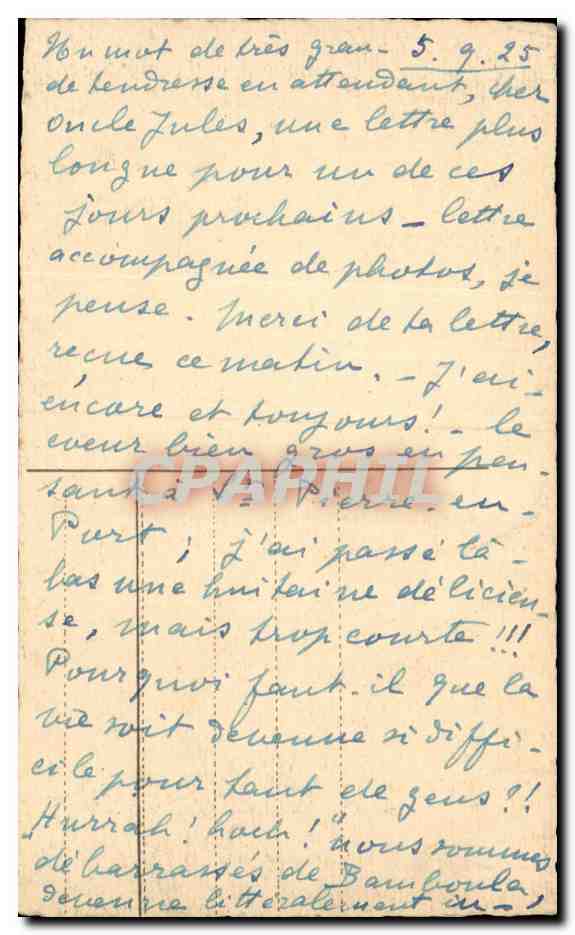 Un mot de très gran- 5.9.25
de tendresse en attendant, cher
Oncle Jules, une lettre plus
longue pour un de ces
jours prochains - lettre
accompagnée de photos, je
pense. Merci de ta lettre,
reçue ce matin. - J'ai -
encore et toujours! - le
coeur bien gros en pen-
sant à St Pierre-en-
CPAPHIL
Port; j'ai passé là-
bas une huitaine délicieu-
se, mais trop courte!!!
Pourquoi faut-il que la
vie soit devenue si diffi-
cile pour tant de gens?!
"Hurrah! hoch!" nous sommes
débarrassés de Bamboula,
devenue littéralement in-